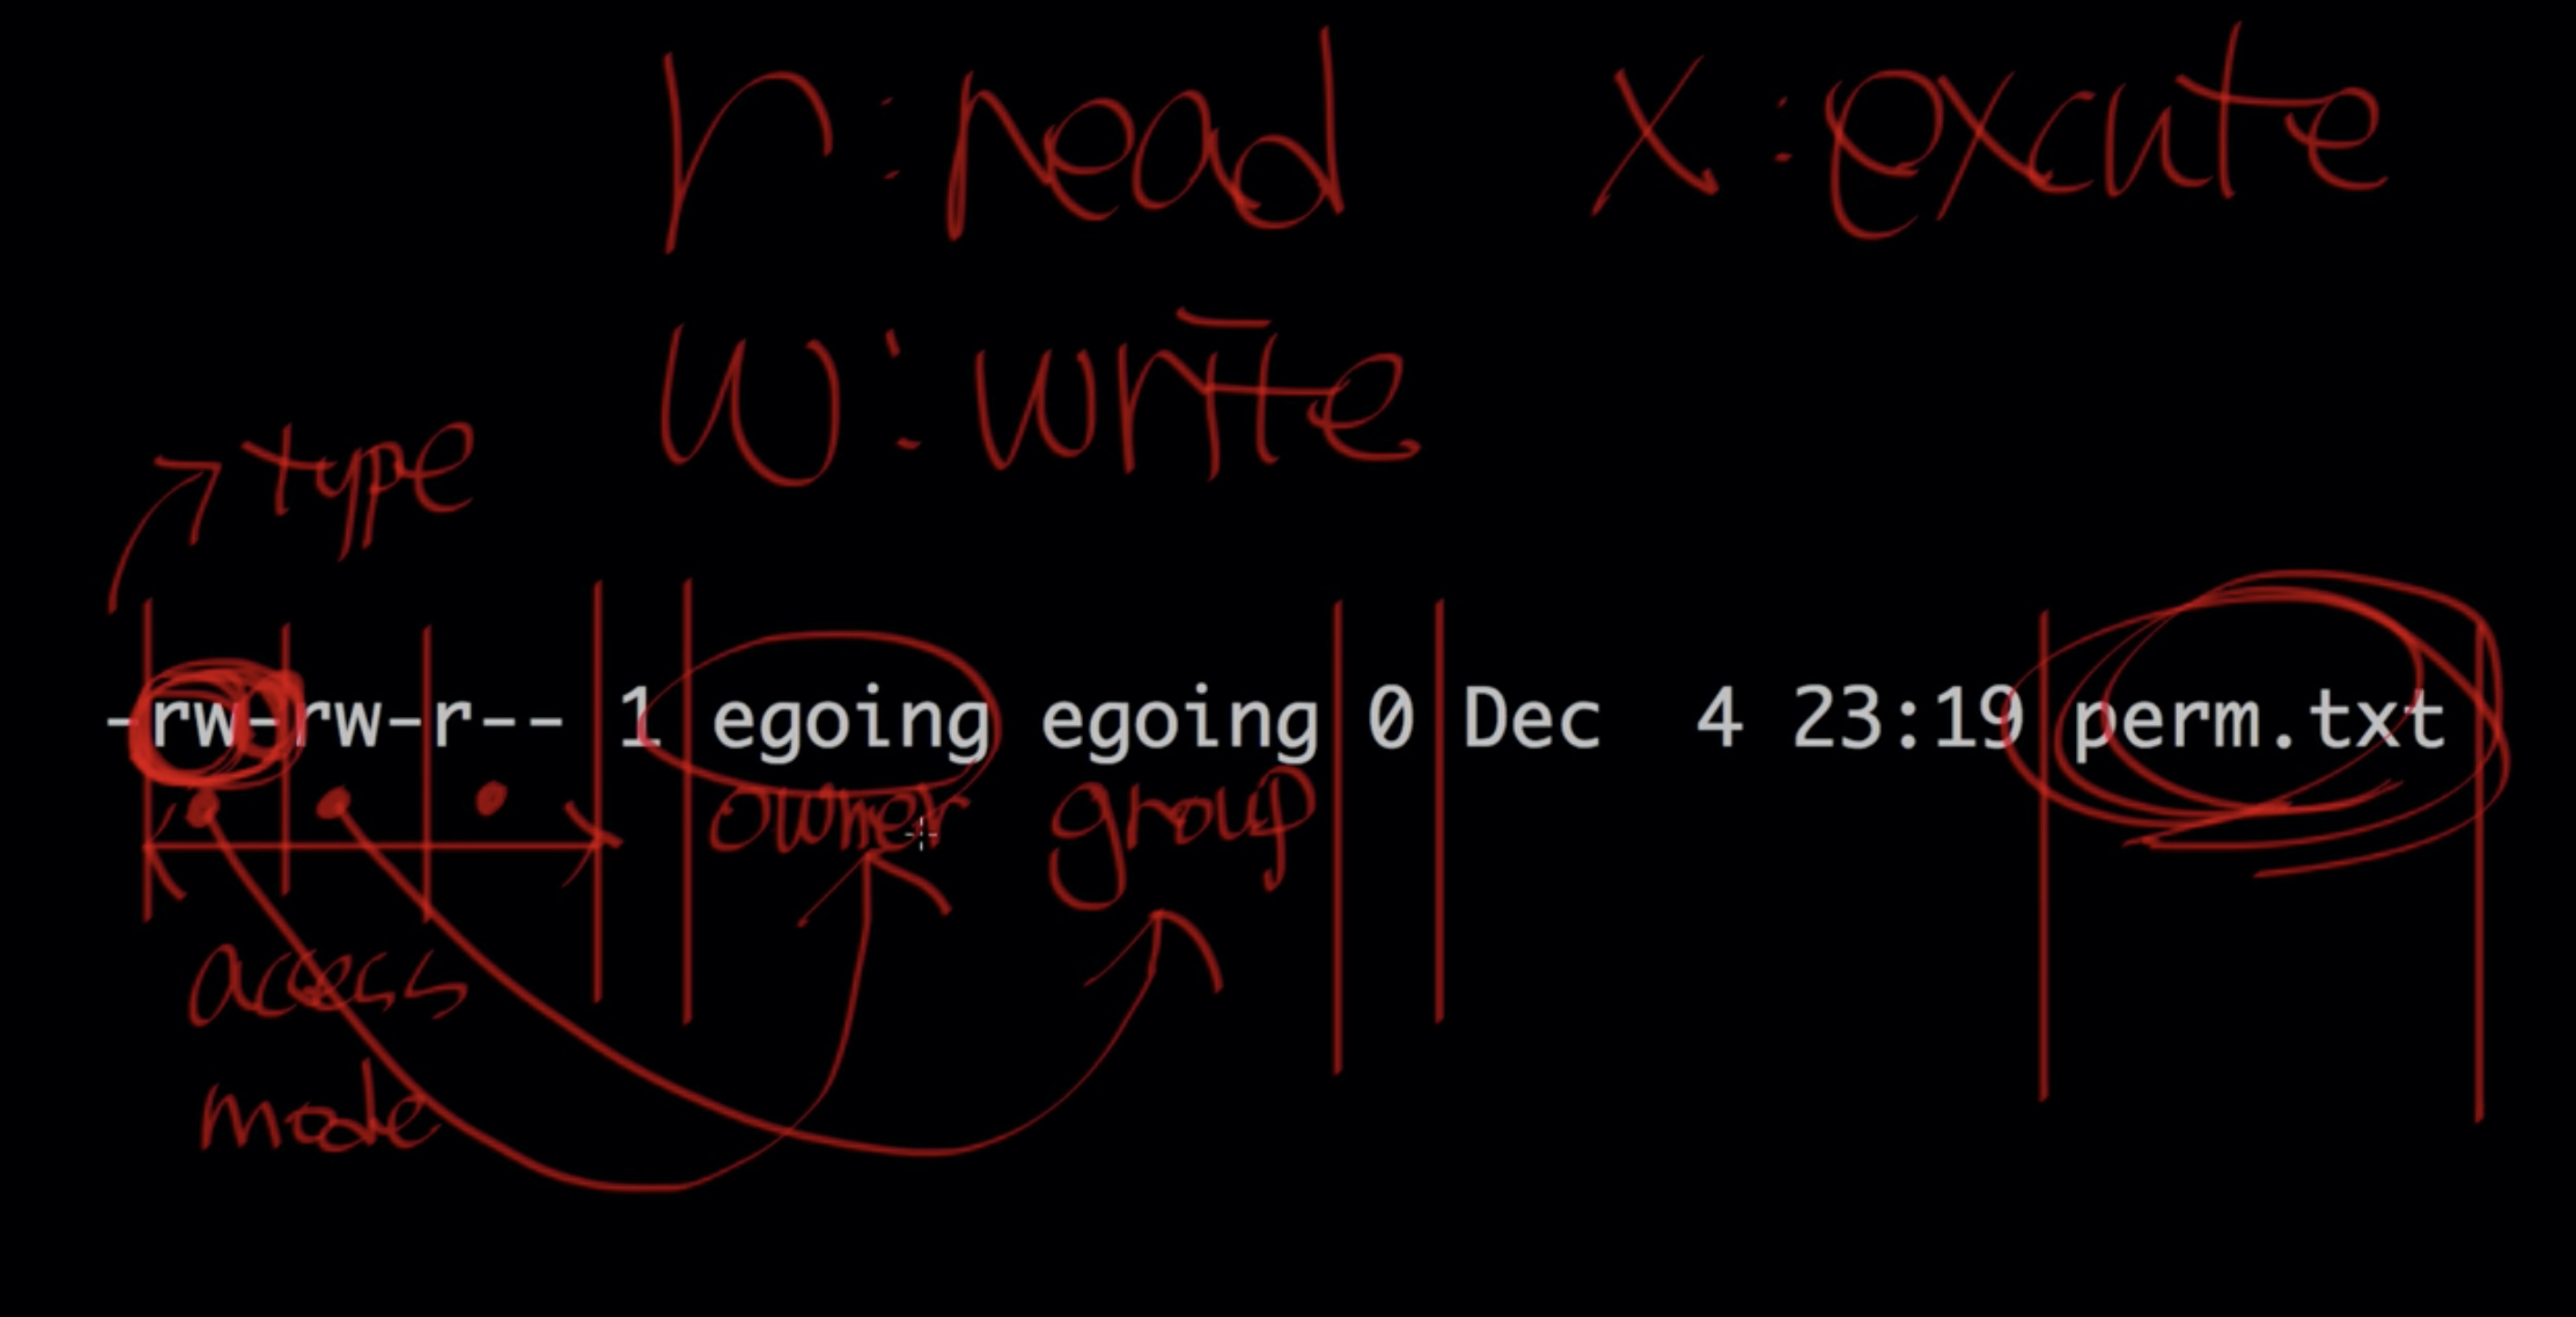 r : read x : excute
w : write
type
-rw-rw-r-- 1 egoing egoing 0 Dec  4 23:19 perm.txt
owner group
access
mode